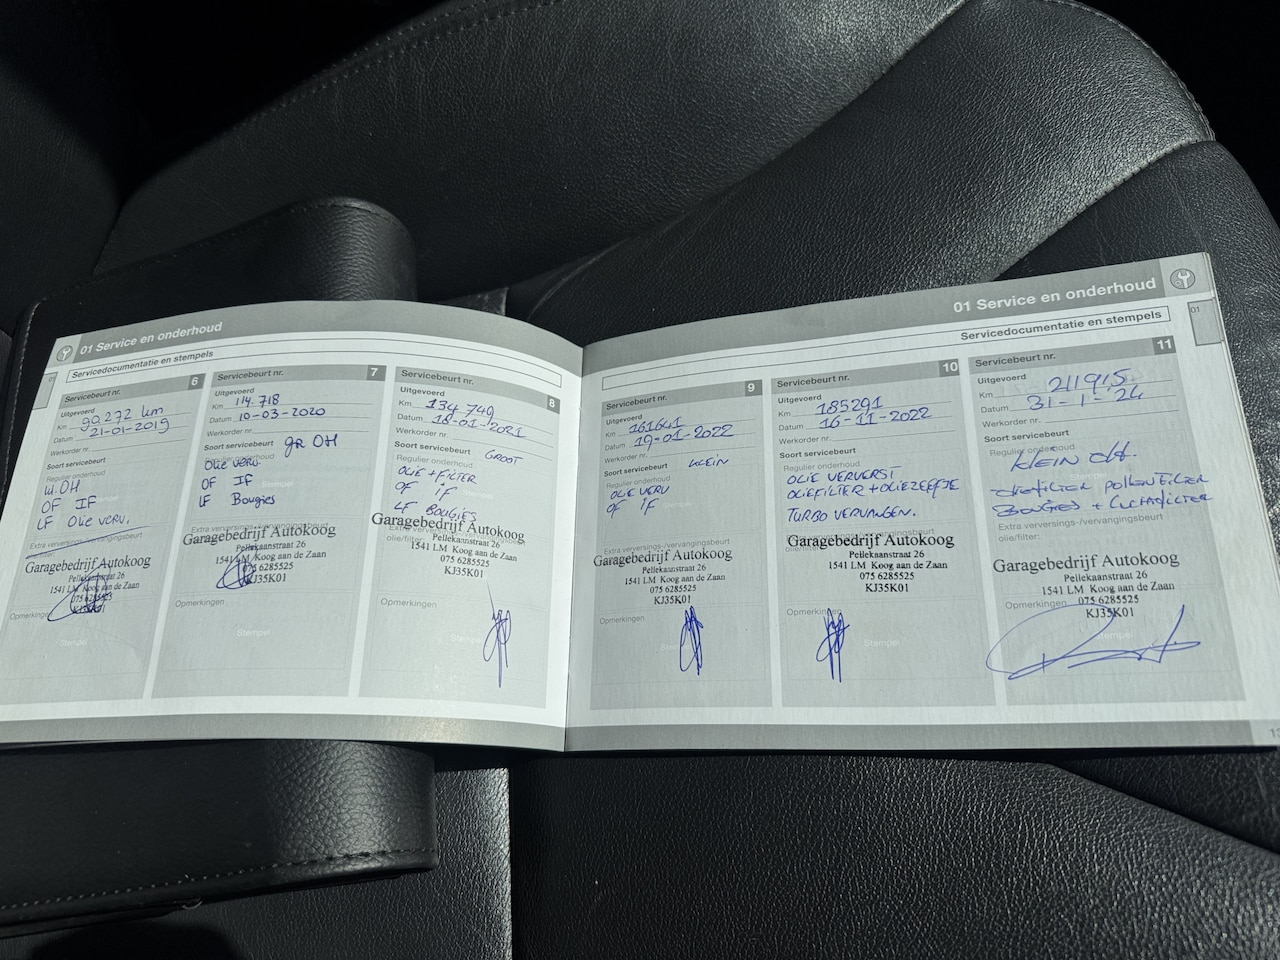 01 Service en onderhoud
Servicedocumentatie en stempels
Servicebeurt nr. 6
Uitgevoerd
Km 90.272 km
Datum 21-01-2019
Werkorder nr.
Soort servicebeurt
Regulier onderhoud
OF IF
LF Olie verv.
Extra verversings-/vervangingsbeurt
Garagebedrijf Autokoog
Pellekaanstraat 26
1541 LM Koog aan de Zaan
075 6285525
KJ35K01
Opmerkingen
Stempel
Servicebeurt nr. 7
Uitgevoerd
Km 114.718
Datum 10-03-2020
Werkorder nr.
Soort servicebeurt gr OH
Olie verv.
OF IF
LF Bougies
Extra verversings-/vervangingsbeurt
Garagebedrijf Autokoog
Pellekaanstraat 26
1541 LM Koog aan de Zaan
075 6285525
KJ35K01
Opmerkingen
Stempel
Servicebeurt nr. 8
Uitgevoerd
Km 134 749
Datum 18-01-2021
Werkorder nr.
Soort servicebeurt GROOT
Regulier onderhoud
OLIE + FILTER
OF IF
LF BOUGIES
Garagebedrijf Autokoog
Pellekaanstraat 26
1541 LM Koog aan de Zaan
075 6285525
KJ35K01
Opmerkingen
Stempel
01 Service en onderhoud
Servicedocumentatie en stempels
01
Servicebeurt nr. 9
Uitgevoerd
Km 161641
Datum 19-01-2022
Werkorder nr.
Soort servicebeurt KLEIN
Regulier onderhoud
OLIE VERV
OF IF
Extra verversings-/vervangingsbeurt
Garagebedrijf Autokoog
Pellekaanstraat 26
1541 LM Koog aan de Zaan
075 6285525
KJ35K01
Opmerkingen
Servicebeurt nr. 10
Uitgevoerd
Km 185291
Datum 16-11-2022
Werkorder nr.
Soort servicebeurt
Regulier onderhoud
OLIE VERVERST
OLIEFILTER + OLIEZEEFJE
TURBO VERVANGEN.
Garagebedrijf Autokoog
Pellekaanstraat 26
1541 LM Koog aan de Zaan
075 6285525
KJ35K01
Opmerkingen
Servicebeurt nr. 11
Uitgevoerd
Km 211915
Datum 31-1-'24
Werkorder nr.
Soort servicebeurt
Regulier onderhoud
KLEIN OH.
OLIEFILTER POLLENFILTER
BOUGIES + LUCHTFILTER
Extra verversings-/vervangingsbeurt
olie/filter:
Garagebedrijf Autokoog
Pellekaanstraat 26
1541 LM Koog aan de Zaan
075 6285525
KJ35K01
Opmerkingen
Stempel